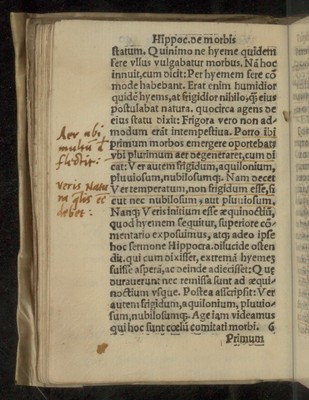 Hippoc. de morbis
statum. Quinimo ne hyeme quidem
fere vllus vulgabatur morbus. Nā hoc
innuit, cum dicit: Per hyemem fere cō
mode habebant. Erat enim humidior
quidē hyems, at frigidior nihilo, q̄ eius
postulabat natura. quocirca agens de
eius statu dixit: Frigora vero non ad-
modum erāt intempestiua. Porro ibi
primum morbos emergere oportebat,
vbi plurimum aer degeneraret, cum di
cat: Ver autem frigidum, aquilonium,
pluuiosum, nubilosumq̄. Nam decet
Ver temperatum, non frigidum esse, si
cut nec nubilosum, aut pluuiosum.
Nanq̄ Veris initium esse æquinoctiū,
quod hyemem sequitur, superiore cō-
mentario exposuimus, atq̄ adeo ipse
hoc sermone Hippocra. dilucide osten
dit. qui cum dixisset, extremā hyemē
fuisse asperā, ac deinde adiecisset: Quę
durauerunt nec remissa sunt ad æqui-
noctium vsque. Postea ascripsit: Ver
autem frigidum, aquilonium, pluuio-
sum, nubilosumq̄. Age iam videamus
qui hoc sunt cœlū comitati morbi. G
Primum
Aer ubi
multū
flectit:
veris natu
debet: